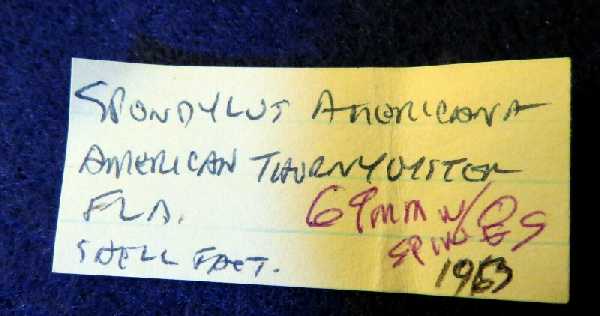 SPONDYLUS AMERICANA
AMERICAN THORNY OYSTER
FLA. 69mm w/
SPINES
SHELL FACT. 1963